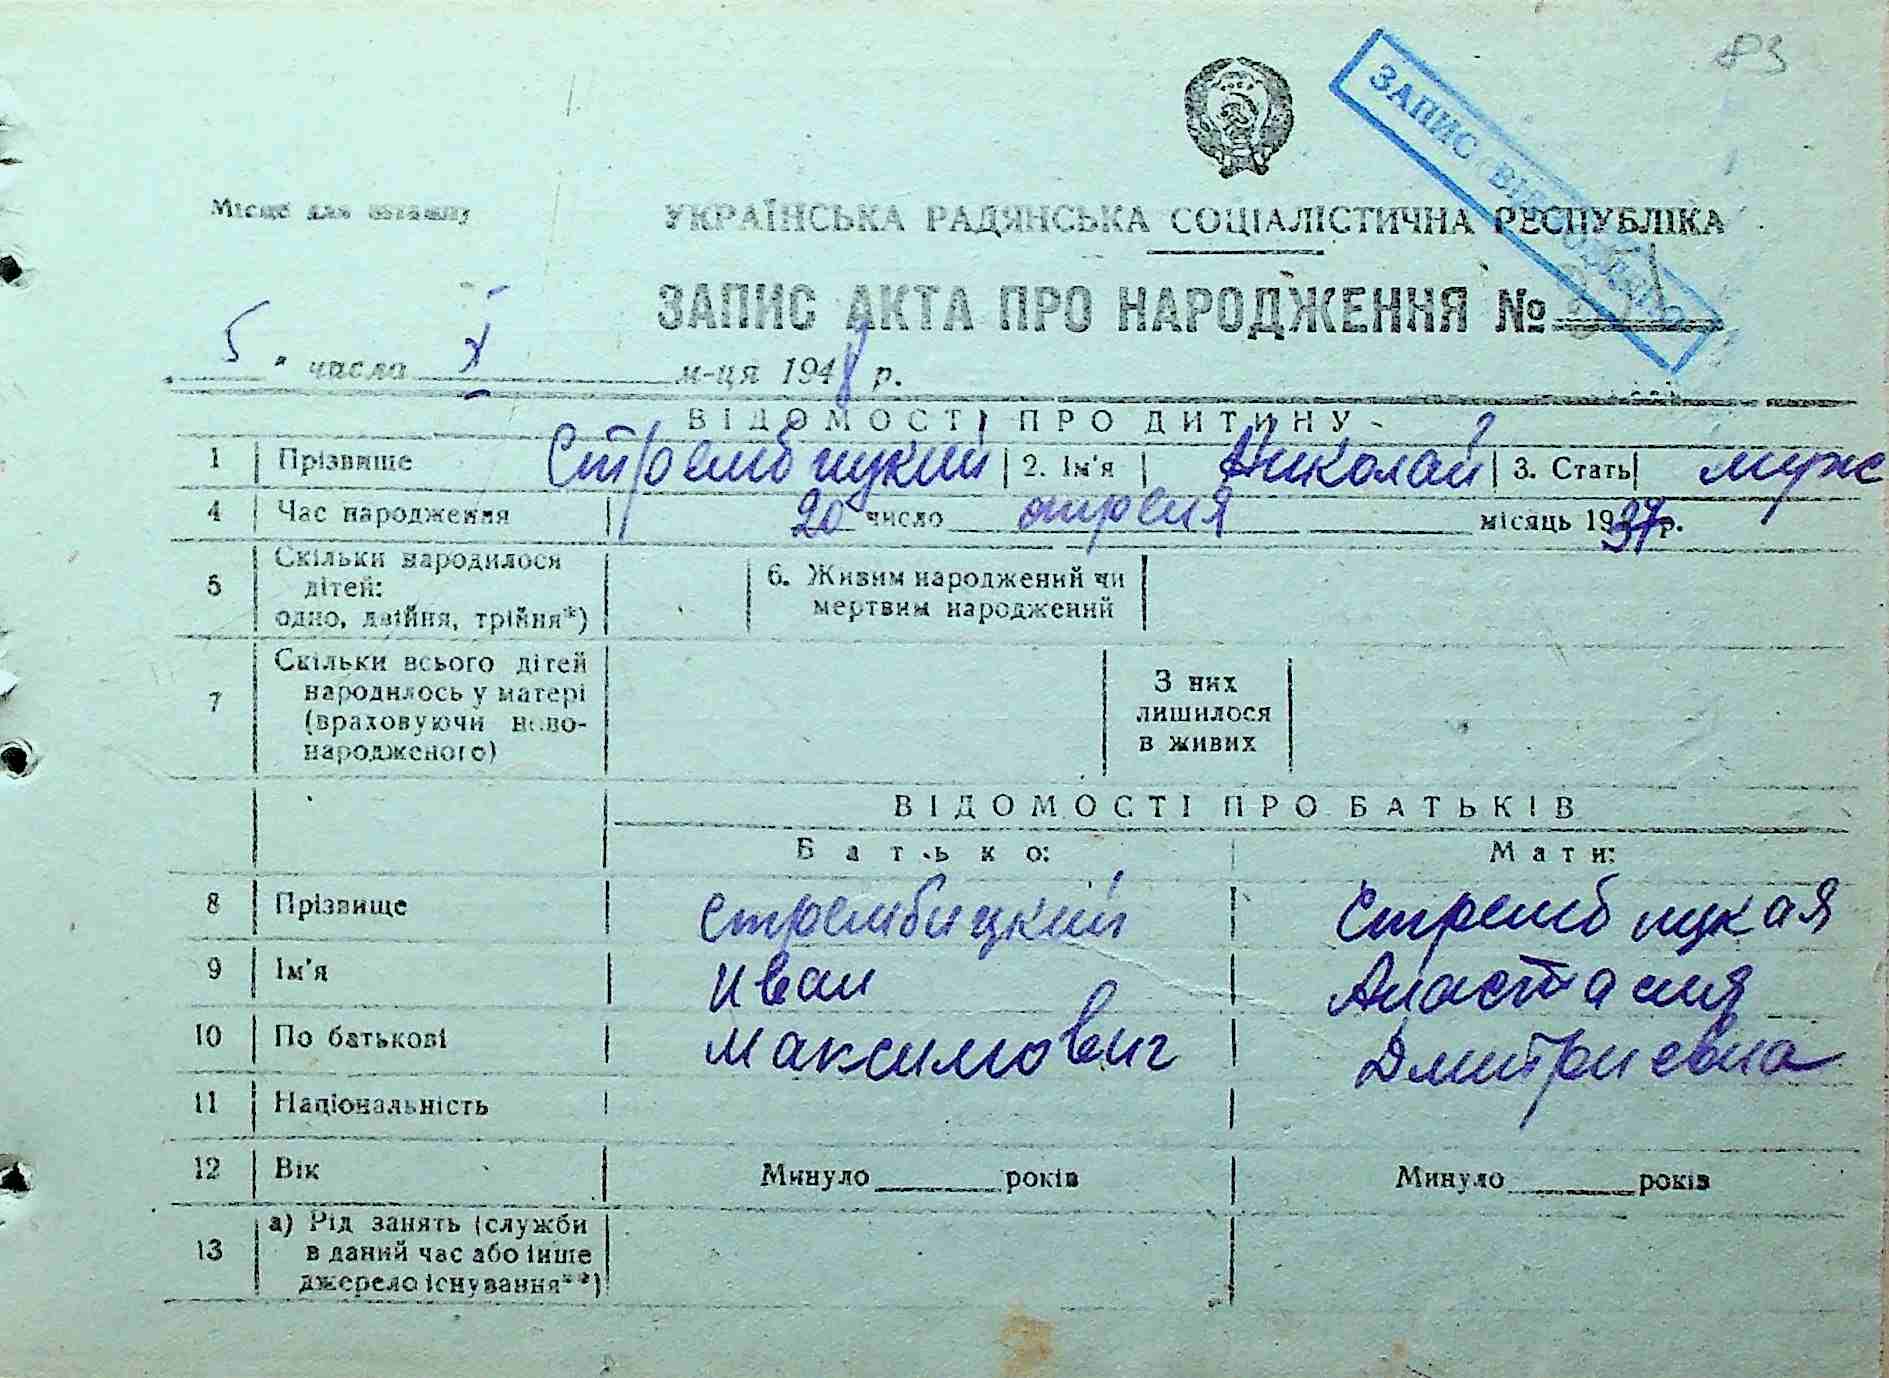 83
ЗАПИС ВІДНОВЛЕНО
Місце для штампу
УКРАЇНСЬКА РАДЯНСЬКА СОЦІАЛІСТИЧНА РЕСПУБЛІКА
ЗАПИС АКТА ПРО НАРОДЖЕННЯ №
5 " числа X м-ця 1948 р.
ВІДОМОСТІ ПРО ДИТИНУ
1 Прізвище Стрембицкий 2. Ім'я Николай 3. Стать муж
4 Час народження 20 число апреля місяць 1937 р.
5 Скільки народилося дітей: одно, двійня, трійня*) 6. Живим народжений чи мертвим народжений
7 Скільки всього дітей народилось у матері (враховуючи новонародженого) З них лишилося в живих
ВІДОМОСТІ ПРО БАТЬКІВ
Батько: Мати:
8 Прізвище Стрембицкий Стрембицкая
9 Ім'я Иван Анастасия
10 По батькові Максимович Дмитриевна
11 Національність
12 Вік Минуло років Минуло років
13 а) Рід занять (служби в даний час або інше джерело існування**)